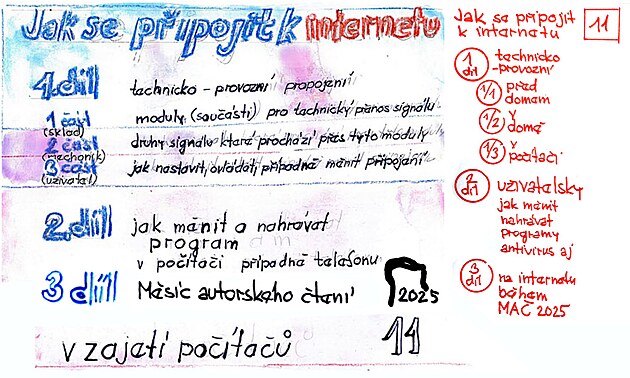 Jak se připojit k internetu
1. díl technicko - provozní propojení
1 část (sklad) moduly (součásti) pro technický přenos signálu
2 část (mechanik) druhy signálu které prochází přes tyto moduly
3 část (uživatel) jak nastavit, ovládat, případně měnit připojení
2. díl jak měnit a nahrávat
program
v počítači případně telefonu
3 díl Měsíc autorského čtení 2025
v zajetí počítačů 11
Jak se připojit
k internetu
11
1 díl technicko
-provozní
1/1 před
domem
1/2 v
domě
1/3 v
počítači
2 díl uživatelsky
jak měnit
nahrávat
programy
antivirus aj
3 díl na internetu
během
MAČ 2025